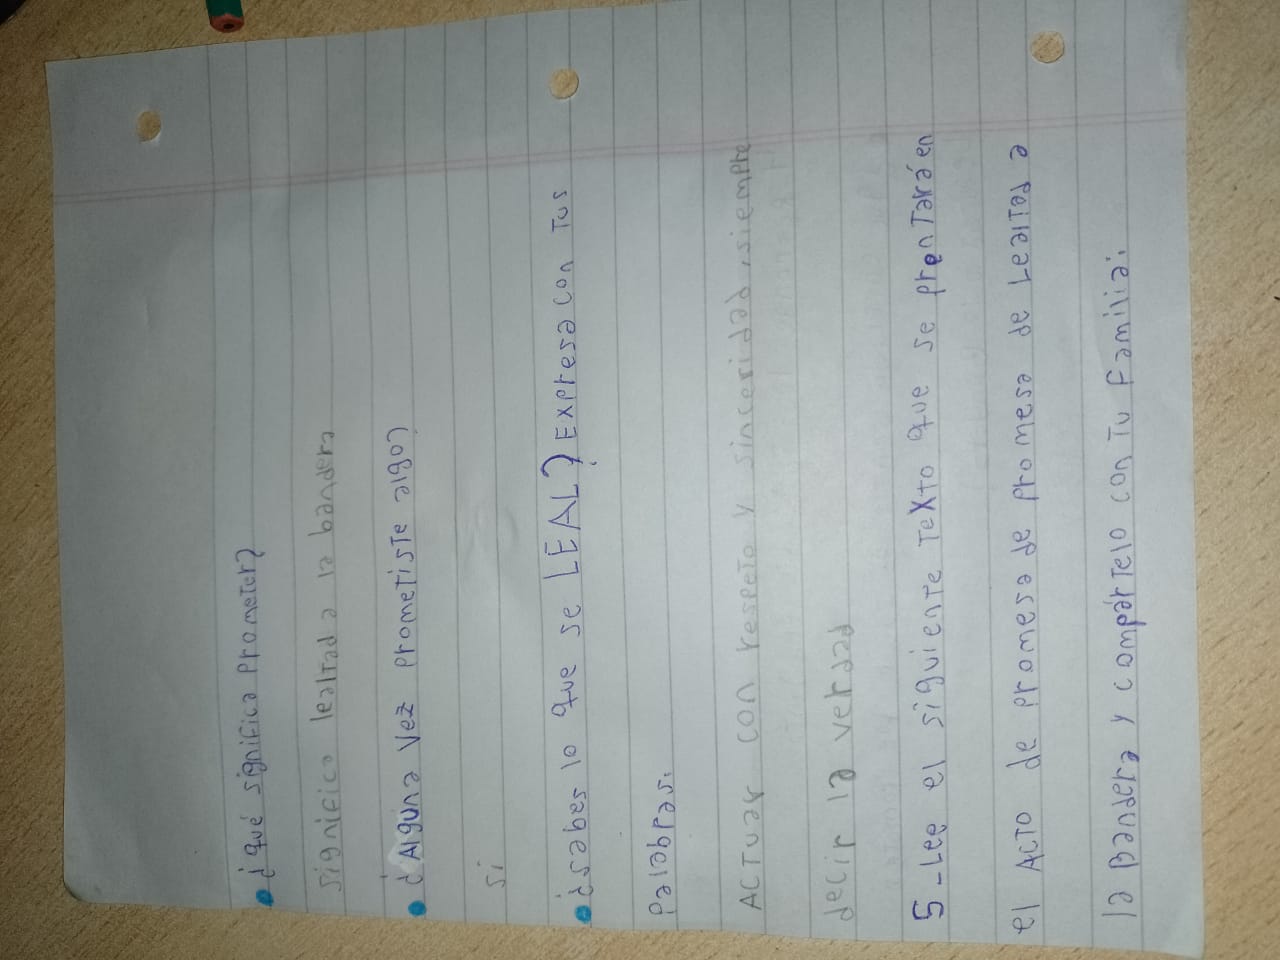 • ¿qué significa prometer?
significa lealtad a la bandera
• ¿Alguna vez prometiste algo?
si
• ¿sabes lo que se LEAL? Expresa con tus
palabras.
Actuar con respeto y sinceridad, siempre
decir la verdad
5-Lee el siguiente texto que se prontará en
el Acto de promesa de promesa de Lealtad a
la Bandera y compártelo con tu familia: